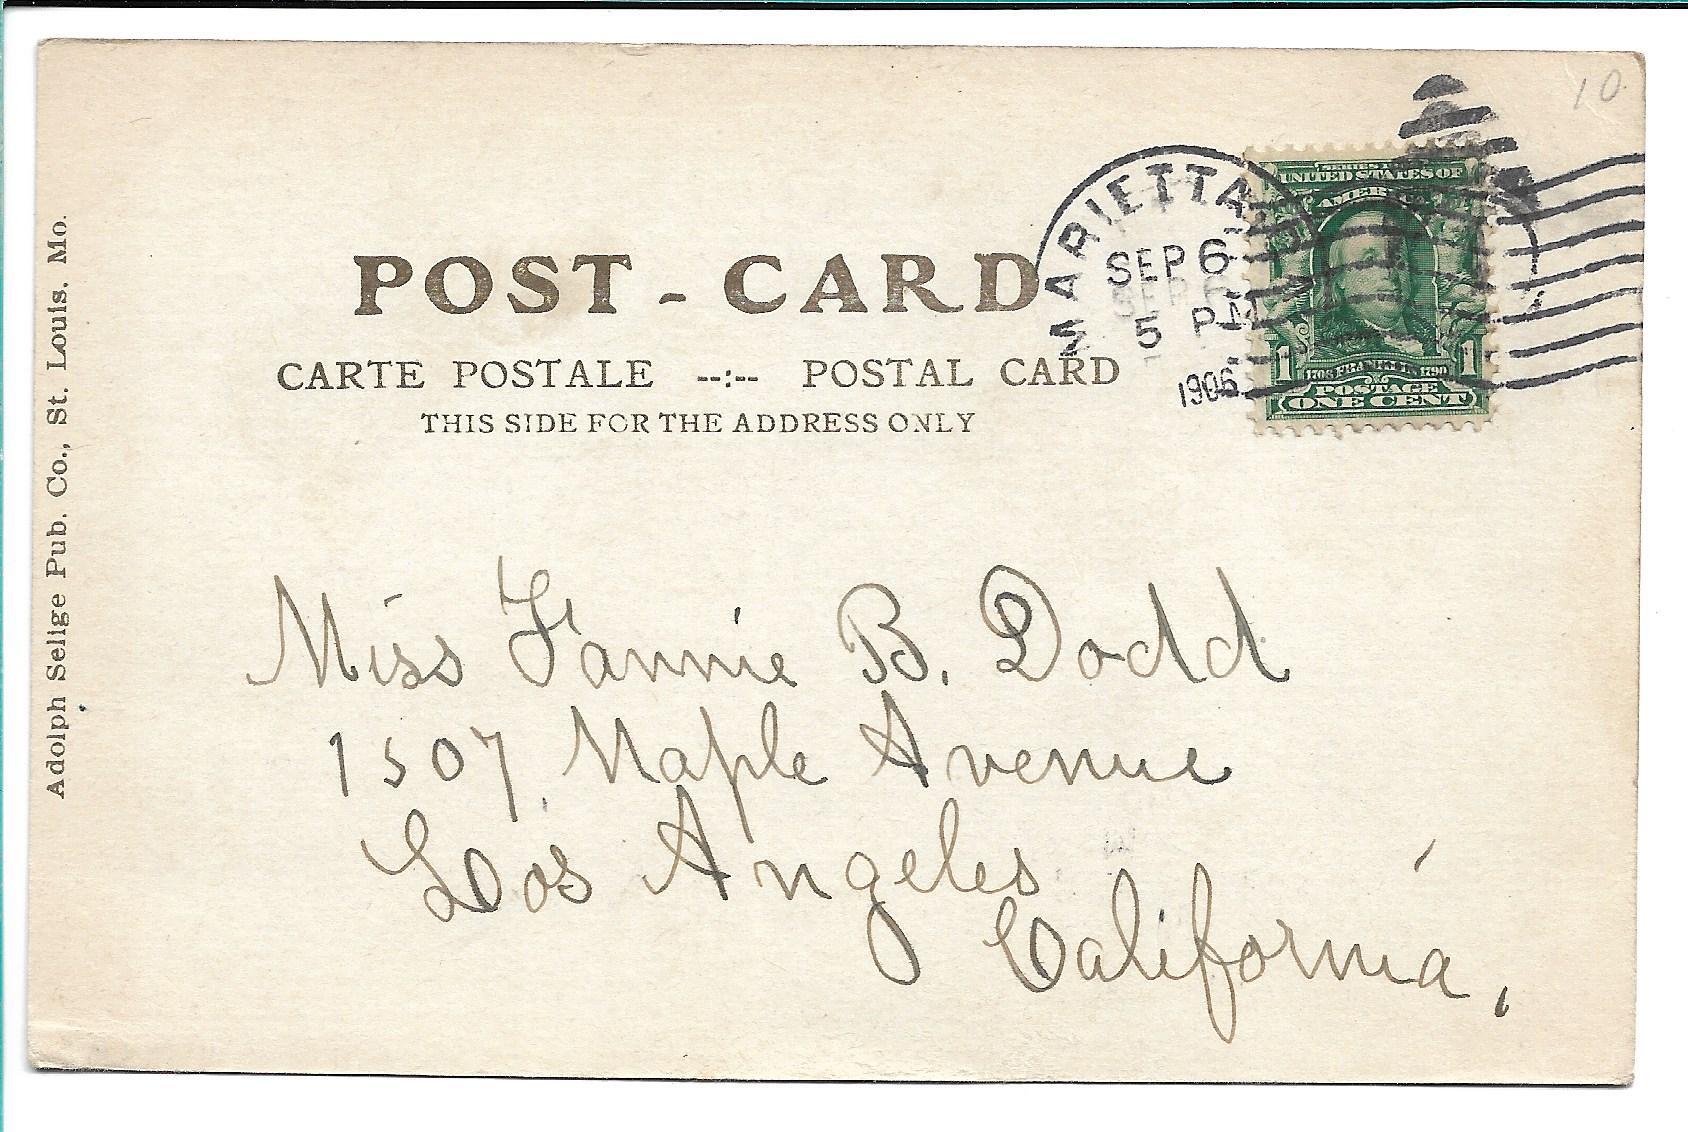 10.
POST - CARD
CARTE POSTALE --:-- POSTAL CARD
THIS SIDE FOR THE ADDRESS ONLY
Adolph Selige Pub. Co., St. Louis. Mo.
MARIETTA
SEP 6
5 PM
1906
UNITED STATES OF
AMERICA
1 1708 FRANKLIN 1790 1
POSTAGE
ONE CENT
Miss Fannie B. Dodd
1507 Maple Avenue
Los Angeles
California,